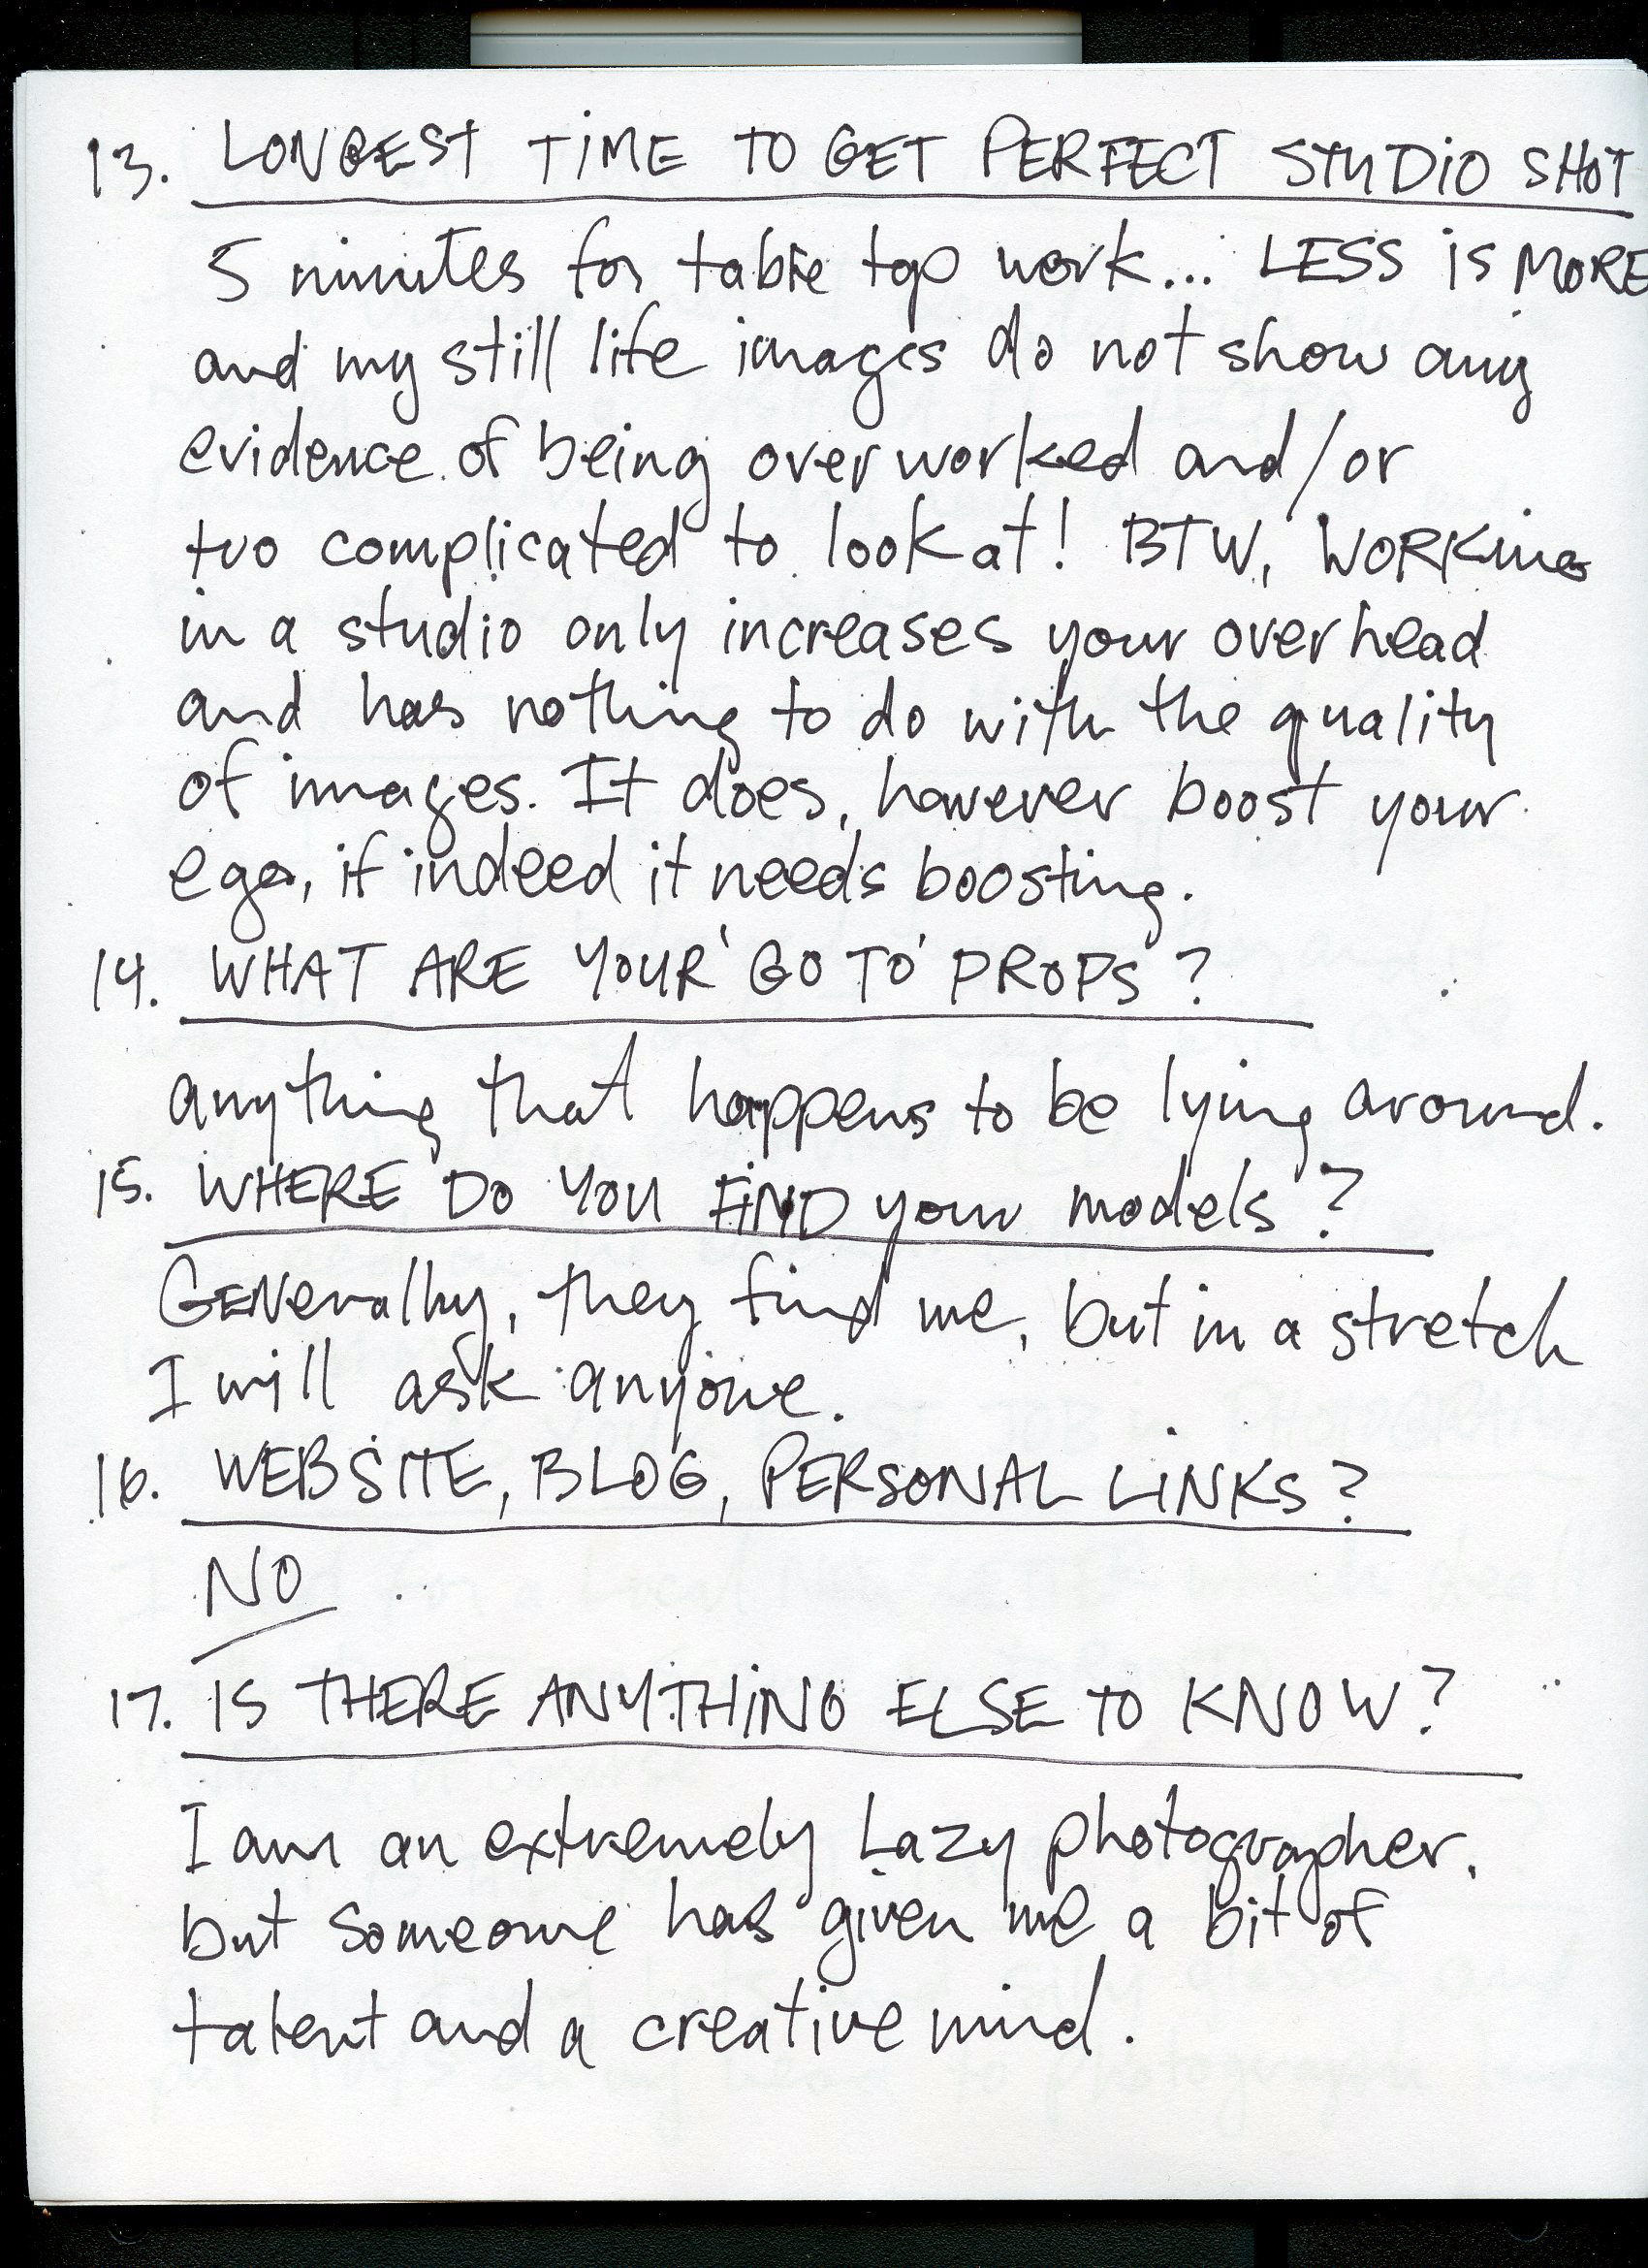 13. LONGEST TIME TO GET PERFECT STUDIO SHOT
5 minutes for table top work... LESS is MORE
and my still life images do not show any
evidence of being overworked and/or
too complicated to look at! BTW, WORKING
in a studio only increases your overhead
and has nothing to do with the quality
of images. It does, however boost your
ego, if indeed it needs boosting.
14. WHAT ARE YOUR 'GO TO' PROPS?
anything that happens to be lying around.
15. WHERE DO YOU FIND your models?
GENerally, they find me, but in a stretch
I will ask anyone.
16. WEBSITE, BLOG, PERSONAL LINKS?
NO
17. IS THERE ANYTHING ELSE TO KNOW?
I am an extremely Lazy photographer,
but someone has given me a bit of
talent and a creative mind.